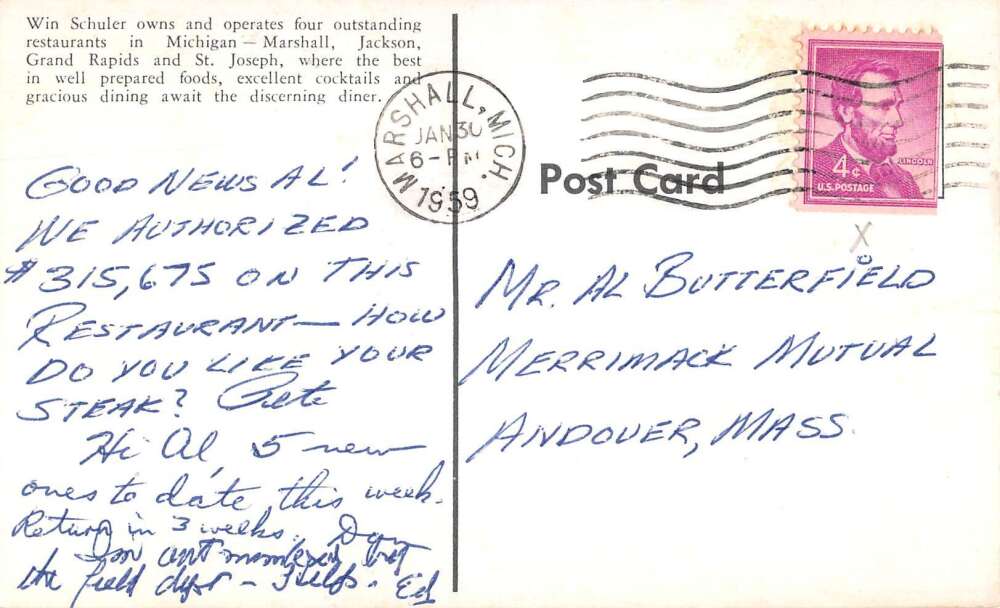 Win Schuler owns and operates four outstanding
restaurants in Michigan — Marshall, Jackson,
Grand Rapids and St. Joseph, where the best
in well prepared foods, excellent cocktails and
gracious dining await the discerning diner.
MARSHALL, MICH.
JAN 30
6-PM
1959
LINCOLN
4¢
U.S. POSTAGE
Post Card
GOOD NEWS AL!
WE AUTHORIZED
$315,675 ON THIS
RESTAURANT — HOW
DO YOU LIKE YOUR
STEAK? Pete
Hi Al, 5 new
ones to date this week.
Return in 3 weeks.
the field dept — Ed
X
MR. AL BUTTERFIELD
MERRIMACK MUTUAL
ANDOVER, MASS.